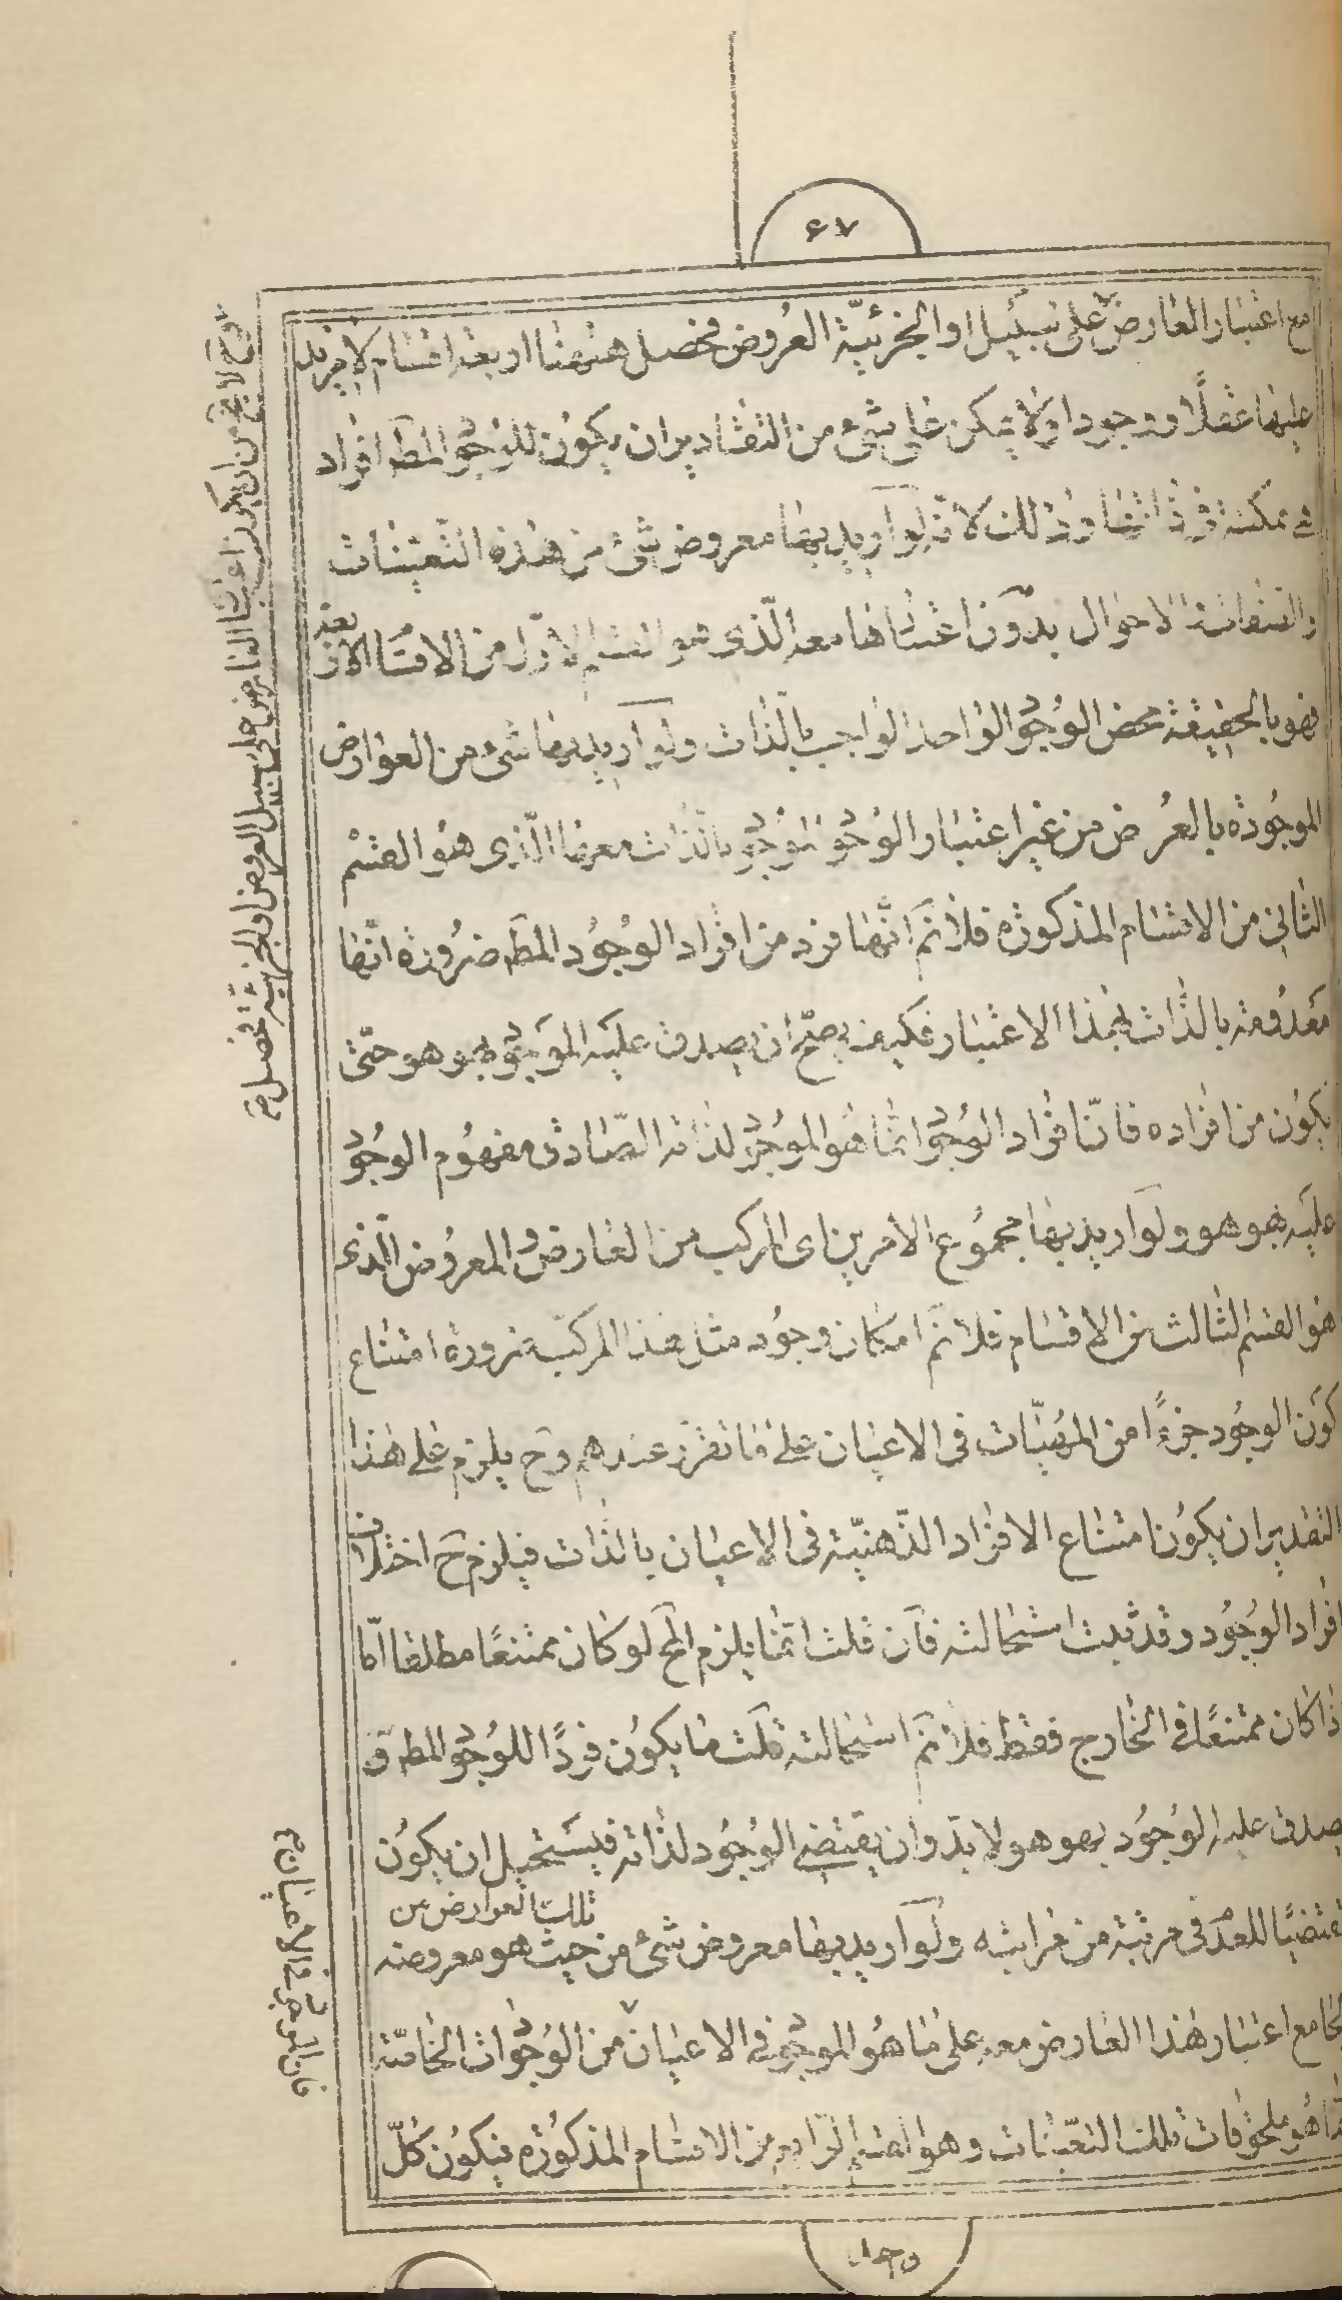 ۶۷
مع اعتبار العارض على سبيل او الجزئية العروض فحصل ههنا اربعة اقسام لا يزيد
عليها عقلا ووجودا ولا يمكن على شئ من التقادير ان يكون للوجود المطم افراد
ممكنة فى ذاتها وذلك لانه لو اريد بها معروض شئ من هذه التعينات
والصفات الاحوال بدون اعتبارها معه الذى هو القسم الاول من الاقسام الاربعة
فهو بالحقيقة محض الوجود الواحد الواجب بالذات ولو اريد بها شئ من العوارض
الموجودة بالعرض من غير اعتبار الوجود الموجود بالذات معها الذى هو القسم
الثانى من الاقسام المذكورة فلانم انها فرد من افراد الوجود المطم ضرورة انها
معدومة بالذات بهذا الاعتبار فكيف يصح ان يصدق عليه الموجود بهو هو حتى
يكون من افراده فان افراد الوجود انما هو الموجود لذاته الصادق مفهوم الوجود
عليه بهو هو ولو اريد بها مجموع الامرين اى المركب من العارض والمعروض الذى
هو القسم الثالث من الاقسام فلانم امكان وجود مثل هذا المركب ضرورة امتناع
كون الوجود جزءا من المهيات فى الاعيان على ما تقرر عندهم وح يلزم على هذا
التقدير ان يكون امتناع الافراد الذهنية فى الاعيان بالذات فيلزم ح اختلاف
افراد الوجود وقد ثبت استحالته فان قلت انما يلزم المح لو كان ممتنعا مطلقا اما
اذا كان ممتنعا فى الخارج فقط فلانم استحالته قلت ما يكون فردا للوجود المطم و
يصدق عليه الوجود بهو هو لا بد وان يقتضى الوجود لذاته فيستحيل ان يكون
مقتضيا للعدم فى مرتبة من مراتبه ولو اريد بها معروض شئ من تلك العوارض من حيث هو معروضه
اى مع اعتبار هذا العارض معه على ما هو الموجود فى الاعيان من الوجودات الخاصة
ملحوقات تلك التعينات وهو القسم الرابع من الاقسام المذكورة فيكون كل
وح لا يخ من ان يكون اعتبار العارض على سبيل العروض او الجزئية فحصل
فان المركب فى الاعيان